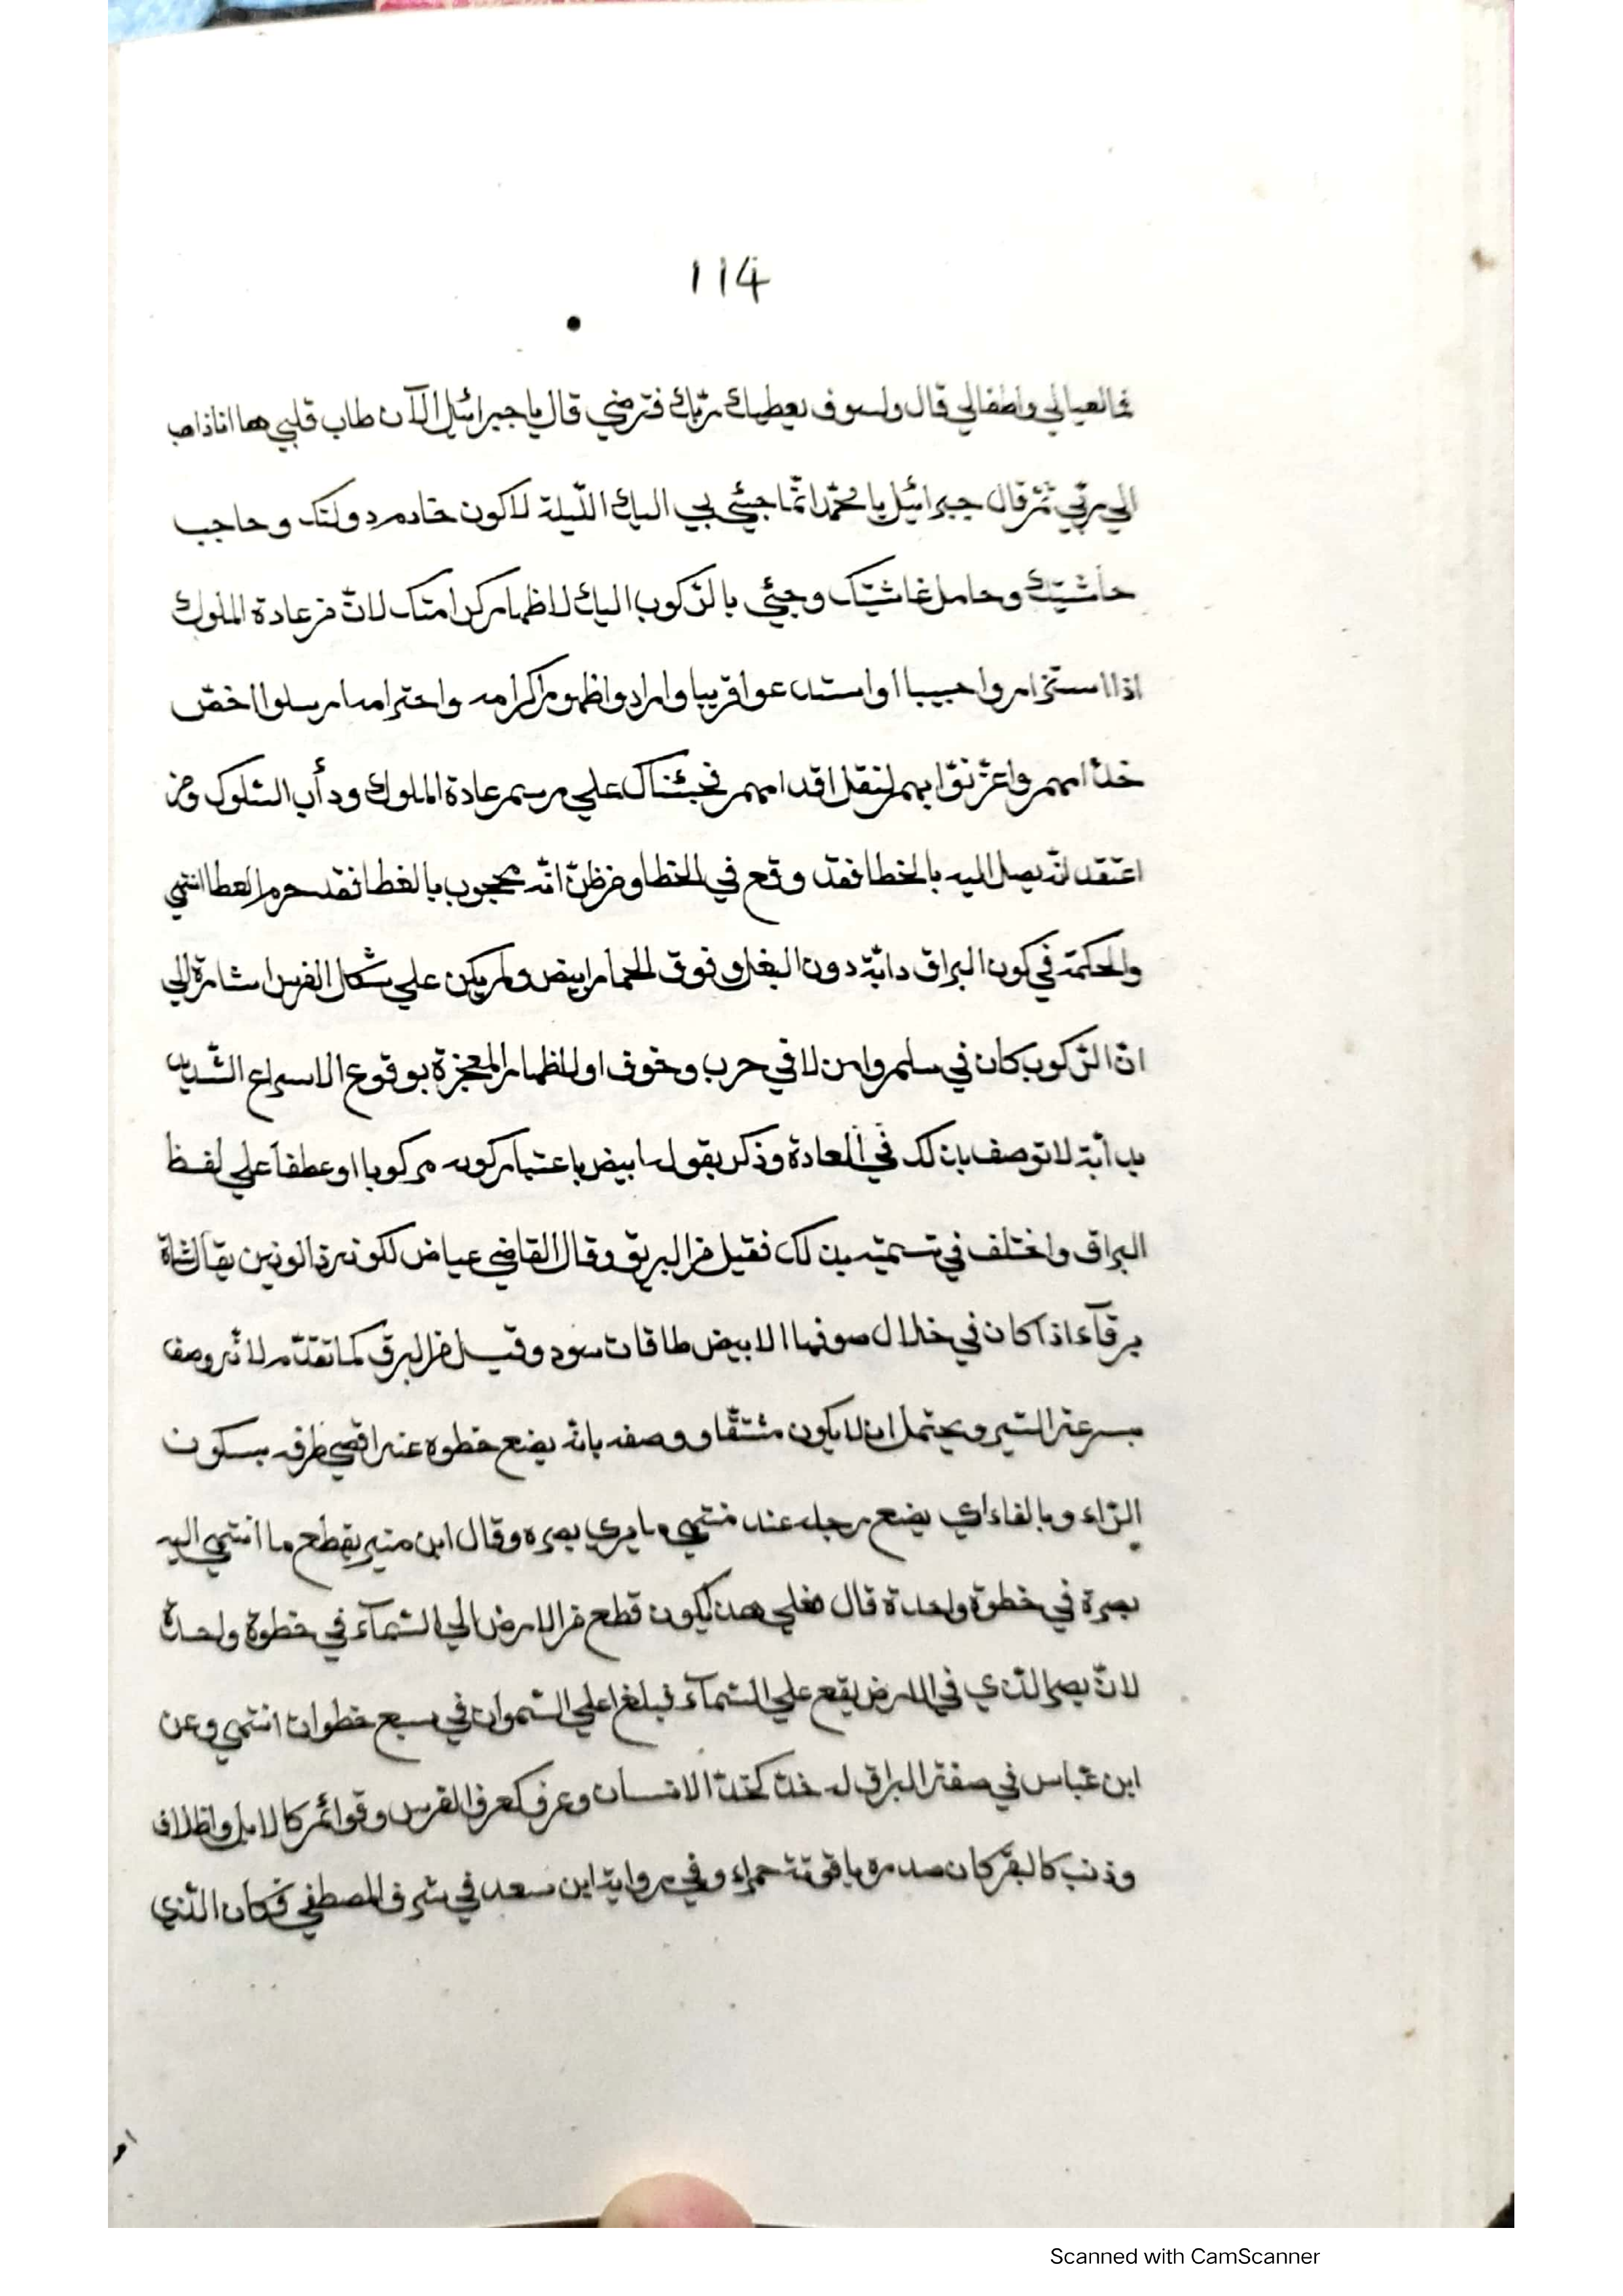 114
فما لعيالي واطفالي قال ولسوف يعطيك ربّك فترضي قال يا جبرائيل الآن طاب قلبي ها انا ذاهب
الي ربّي ثمّ قال جبرائيل يا محمّد انّما جيئ بي اليك اللّيلة لاكون خادم دولتك وحاجب
حاشيتك وحامل غاشيتك وجيئ بالرّكوب اليك لاظهار كرامتك لانّ من عادة الملوك
اذا استزاروا حبيبا او استدعوا قريبا وارادوا ظهور اكرامه واحترامه ارسلوا اخصّ
خدّامهم واعزّ نوّابهم لنقل اقدامهم فجئناك علي رسم عادة الملوك ودأب السّلوك ومن
اعتقد انّه يصل اليه بالخطا فقد وقع في الخطا ومن ظنّ انّه محجوب بالغطا فقد حرم العطا انتهي
والحكمة في كون البراق دابّة دون البغل وفوق الحمار ابيض ولم يكن علي شكل الفرس اشارة الي
انّ الرّكوب كان في سلم وامن لا في حرب وخوف او لاظهار المعجزة بوقوع الاسراع الشّديد
بدابّة لا توصف بذلك في العادة وذكر بقوله ابيض باعتبار كونه مركوبا او عطفا علي لفظ
البراق واختلف في تسميته بذلك فقيل من البريق وقال القاضي عياض لكونه ذا لونين يقال شاة
برقآء اذا كان في خلال صوفها الابيض طاقات سود وقيل من البرق كما تقدّم لانّه وصف
بسرعة السّير ويحتمل ان لا يكون مشتقّا ووصفه بانّه يضع خطوه عند اقصي طرفه بسكون
الرّاء وبالفاء اي يضع رجله عند منتهي ما يري بصره وقال ابن منير يقطع ما انتهي اليه
بصره في خطوة واحدة قال فعلي هذا يكون قطع من الارض الي السّمآء في خطوة واحدة
لانّ بصر الّذي في الارض يقع علي السّمآء فبلغ اعلي السّموات في سبع خطوات انتهي وعن
ابن عبّاس في صفة البراق له خدّ كخدّ الانسان وعرف كعرف الفرس وقوائم كالابل واظلاف
وذنب كالبقر كان صدره ياقوتة حمراء وفي رواية ابن سعد في شرف المصطفي فكان الّذي